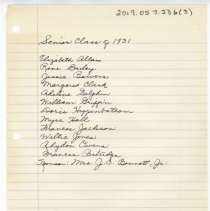 2019.057.236(3)
Senior Class of 1931
Elizabeth Allen
Rene Bailey
Jessie Beavers
Margaret Clark
Adeline Dolphin
William Griffin
Doris Higginbotham
Myra Hall
Frances Jackson
Willie Jones
Rhydon Owens
Frances Partridge
Sponsor: Mrs J. C. Bennett, Jr